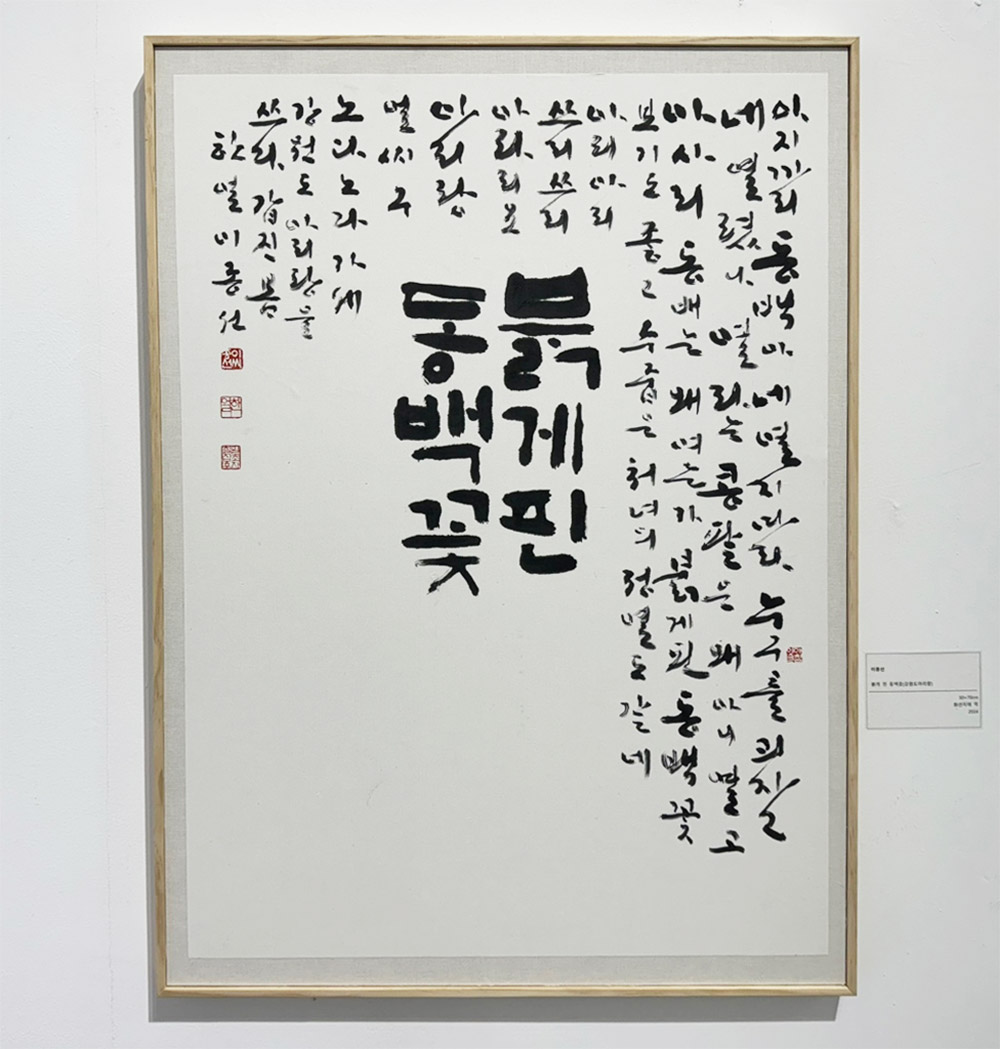 아지까리 동백아 네 열지마라. 누구를
네 열렸나. 열라는 콩팥은 왜 아니 열고
아사리 동배는 왜 여는가 붉게 핀 동백꽃
보기도 좋고 수줍은 처녀의 정열도 같네
아리아리
쓰리쓰리
아라리요
아리랑
얼씨구
노다. 노다 가세
강원도 아리랑을
쓰다. 갑진 봄
한얼 이종선
붉게핀
동백꽃
이종선
붉게 핀 동백꽃(강원도아리랑)
50×70cm
화선지에 먹
2024